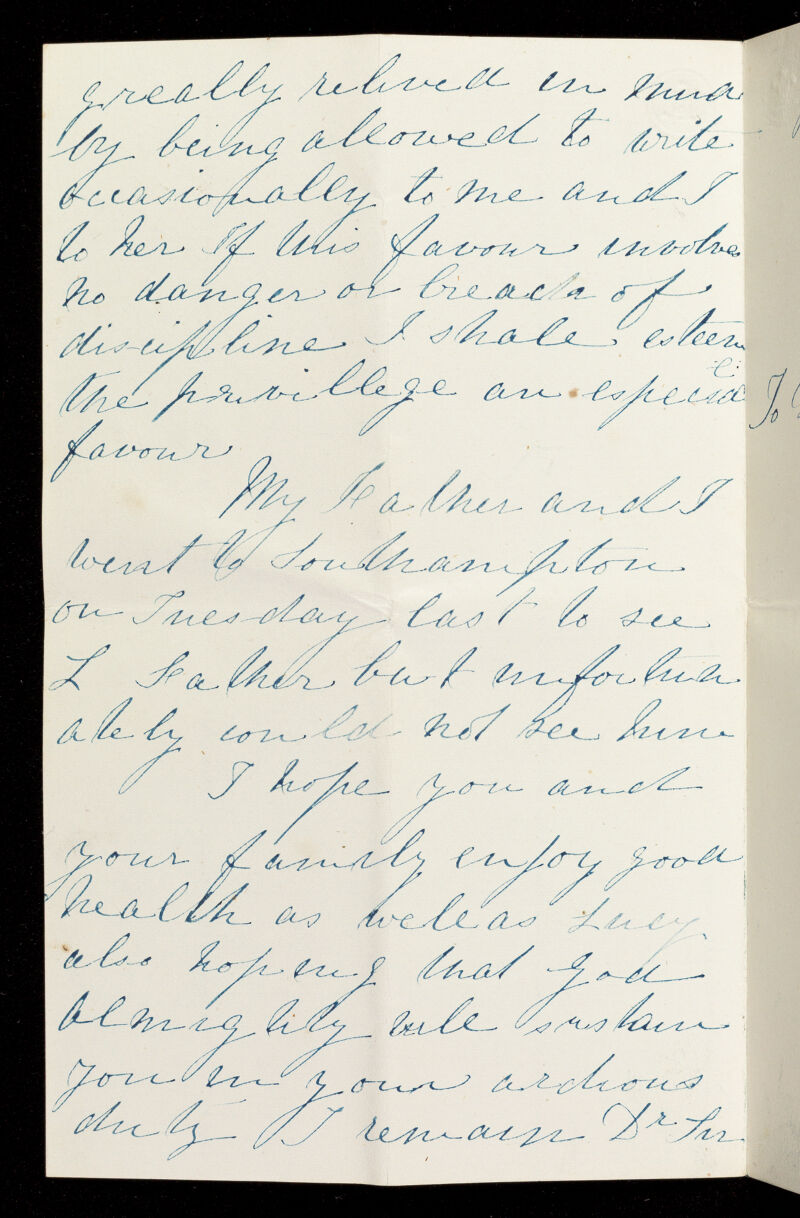 greally relived in mind
by being allowed to write
occasionally to me and I
to her If this favour involves
no danger or breach of
discipline I shale esteem
the privillege an especial
favour
My Father and I
went to Southampton
on Tuesday last to see
L Father but unfortun
ately could not see him
I hope you and
your family enjoy good
health as wele as Lucy
also hoping that god
almighty will sustain
you in your ardious
duty I remain Dr Sir
To